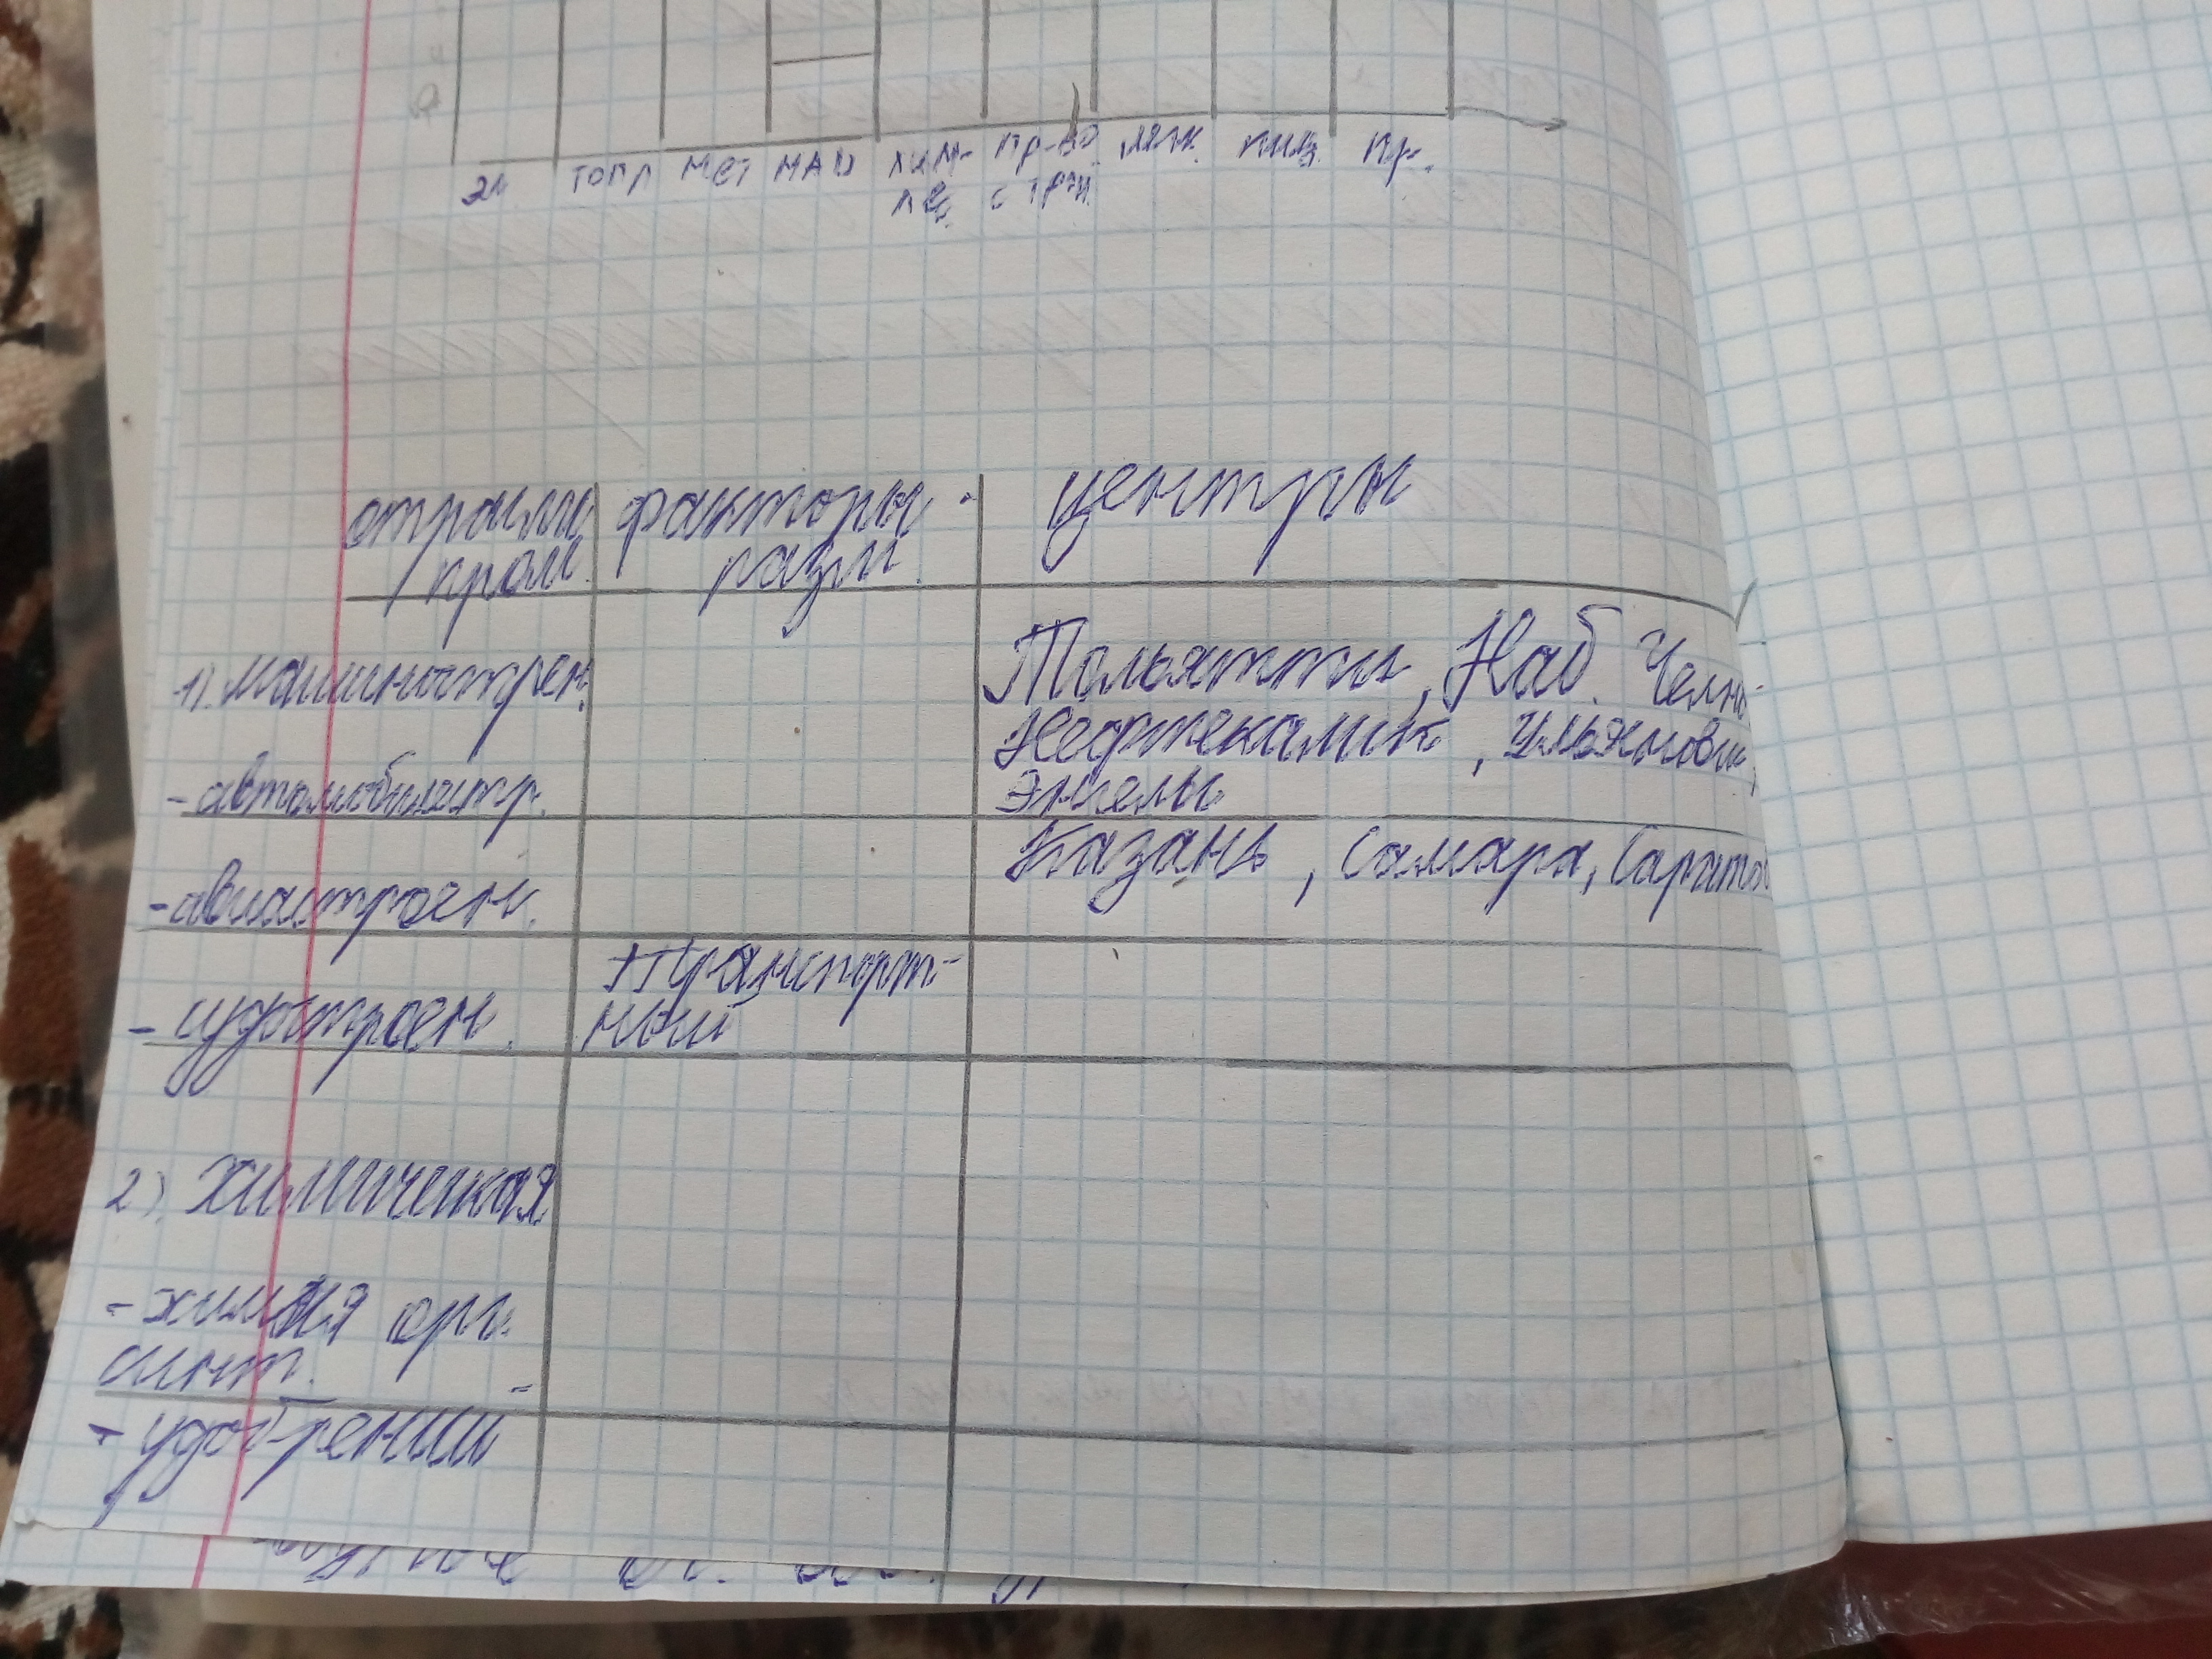 эл топл мет маш хим- пр-во легк. пищ. пр.
лес. строй.
отрасли факторы центры
пром. разм.
1). машиностроен.
Тольятти, Наб. Челны,
Нефтекамск, Ульяновск,
- автомобилестр. Энгельс
Казань, Самара, Саратов
- авиастроен.
- судостроен. Транспорт-
ный
2). химическая
- химия орг.
синт.
- удобрений